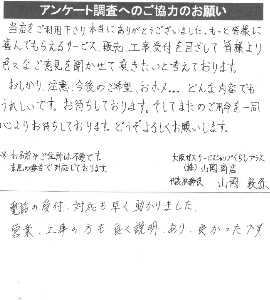 アンケート調査へのご協力のお願い
当店をご利用下さり本当にありがとうございました。もっと皆様に
喜んでもらえるサービス、販売、工事受付を目ざして皆様より
色々なご意見を聞かせて頂きたいと考えております。
おしかり、注意、今後のご希望、おホメ… どんな内容でも
うれしいです。お待ちしております。そしてまたのご用命を一同
心よりお待ちしております。どうぞよろしくお願いします。
※お名前やご住所は不要です。
大阪ガス
(株)山岡商店
山岡
電話の受付、対応も早く助かりました。
営業、工事の方も良く説明、あり、良かったです